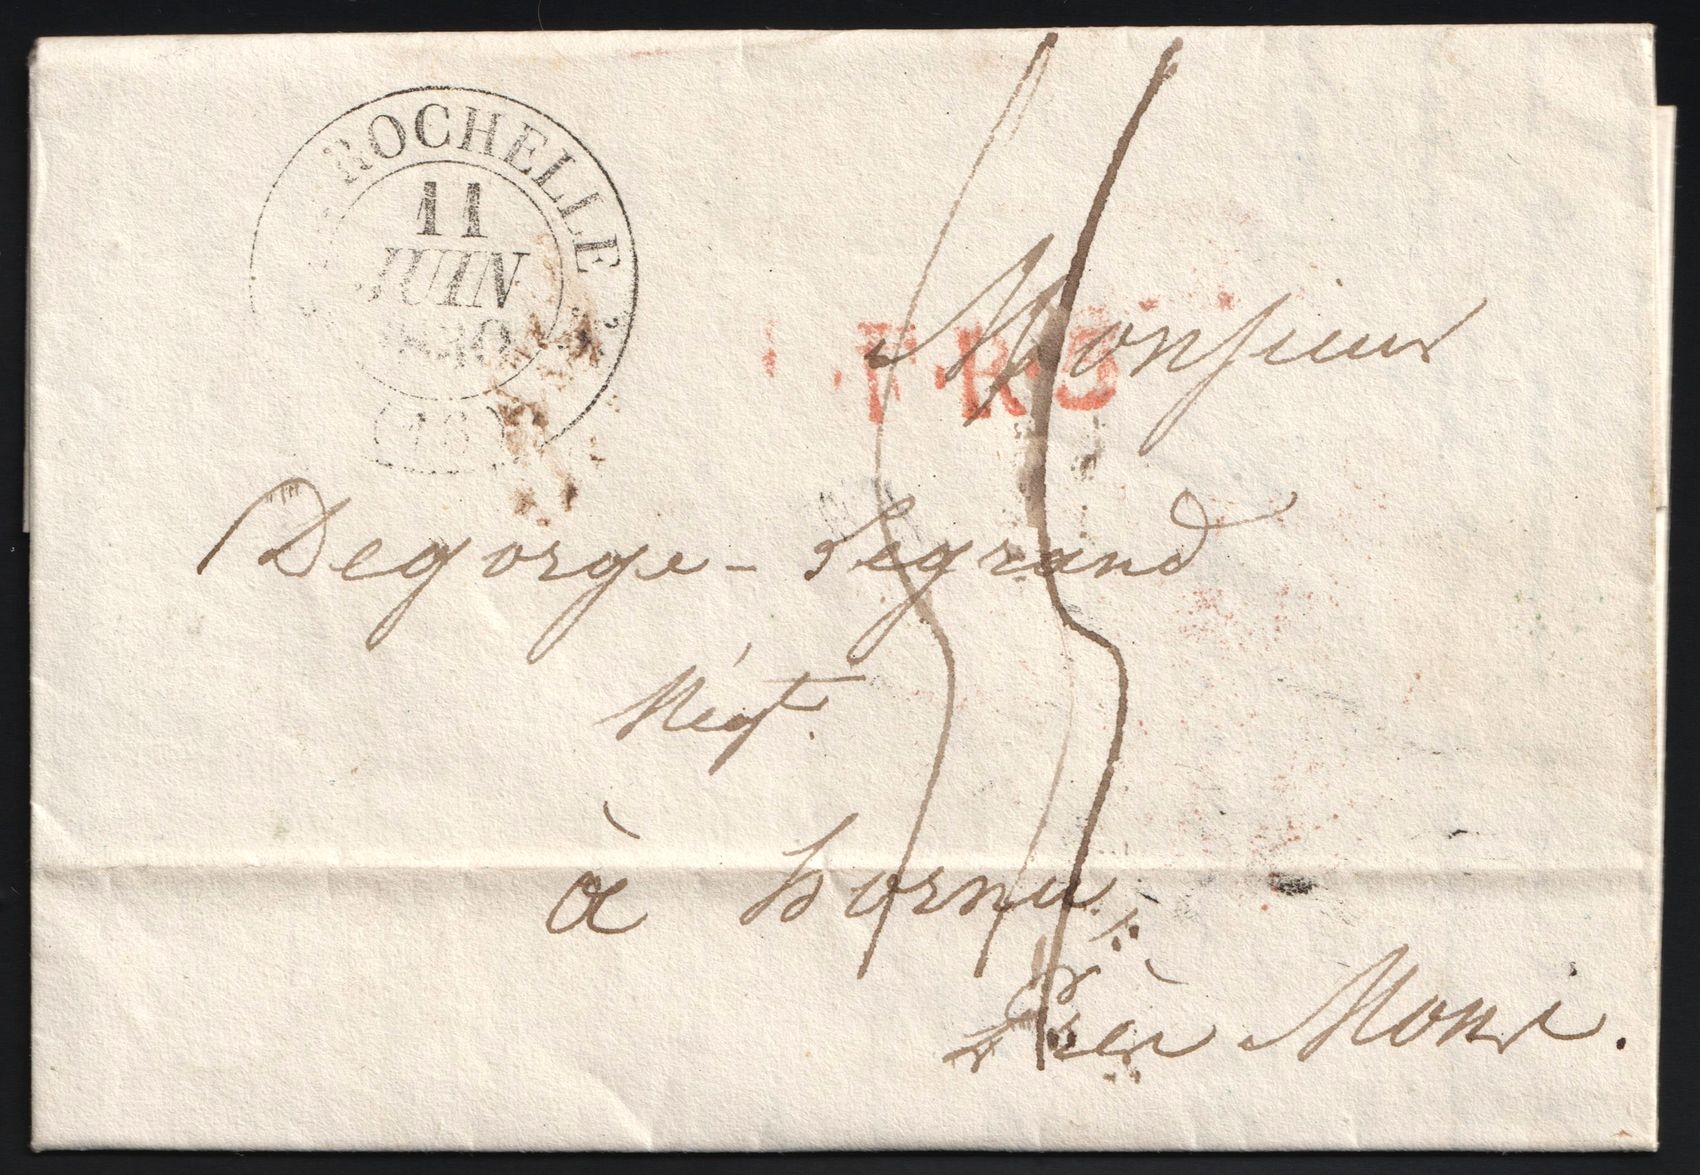 ROCHELLE
11
JUIN
1830
(16)
L.F.R.3
Monsieur
Degorge-Legrand
Négt.
à hornu
Près Mons.